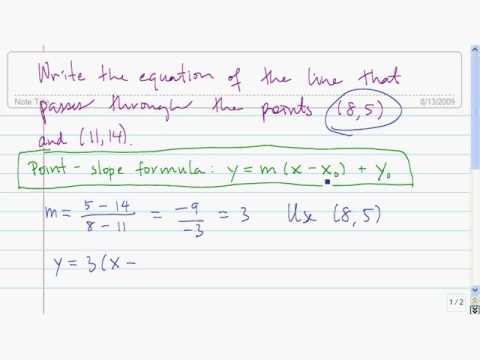 Write the equation of the line that
passes through the points (8,5)
8/13/2009
and (11,14).
Point-slope formula: y = m(x - x₀) + y₀
m = 5-14 / 8-11 = -9 / -3 = 3 Use (8,5)
y = 3(x -
1/2